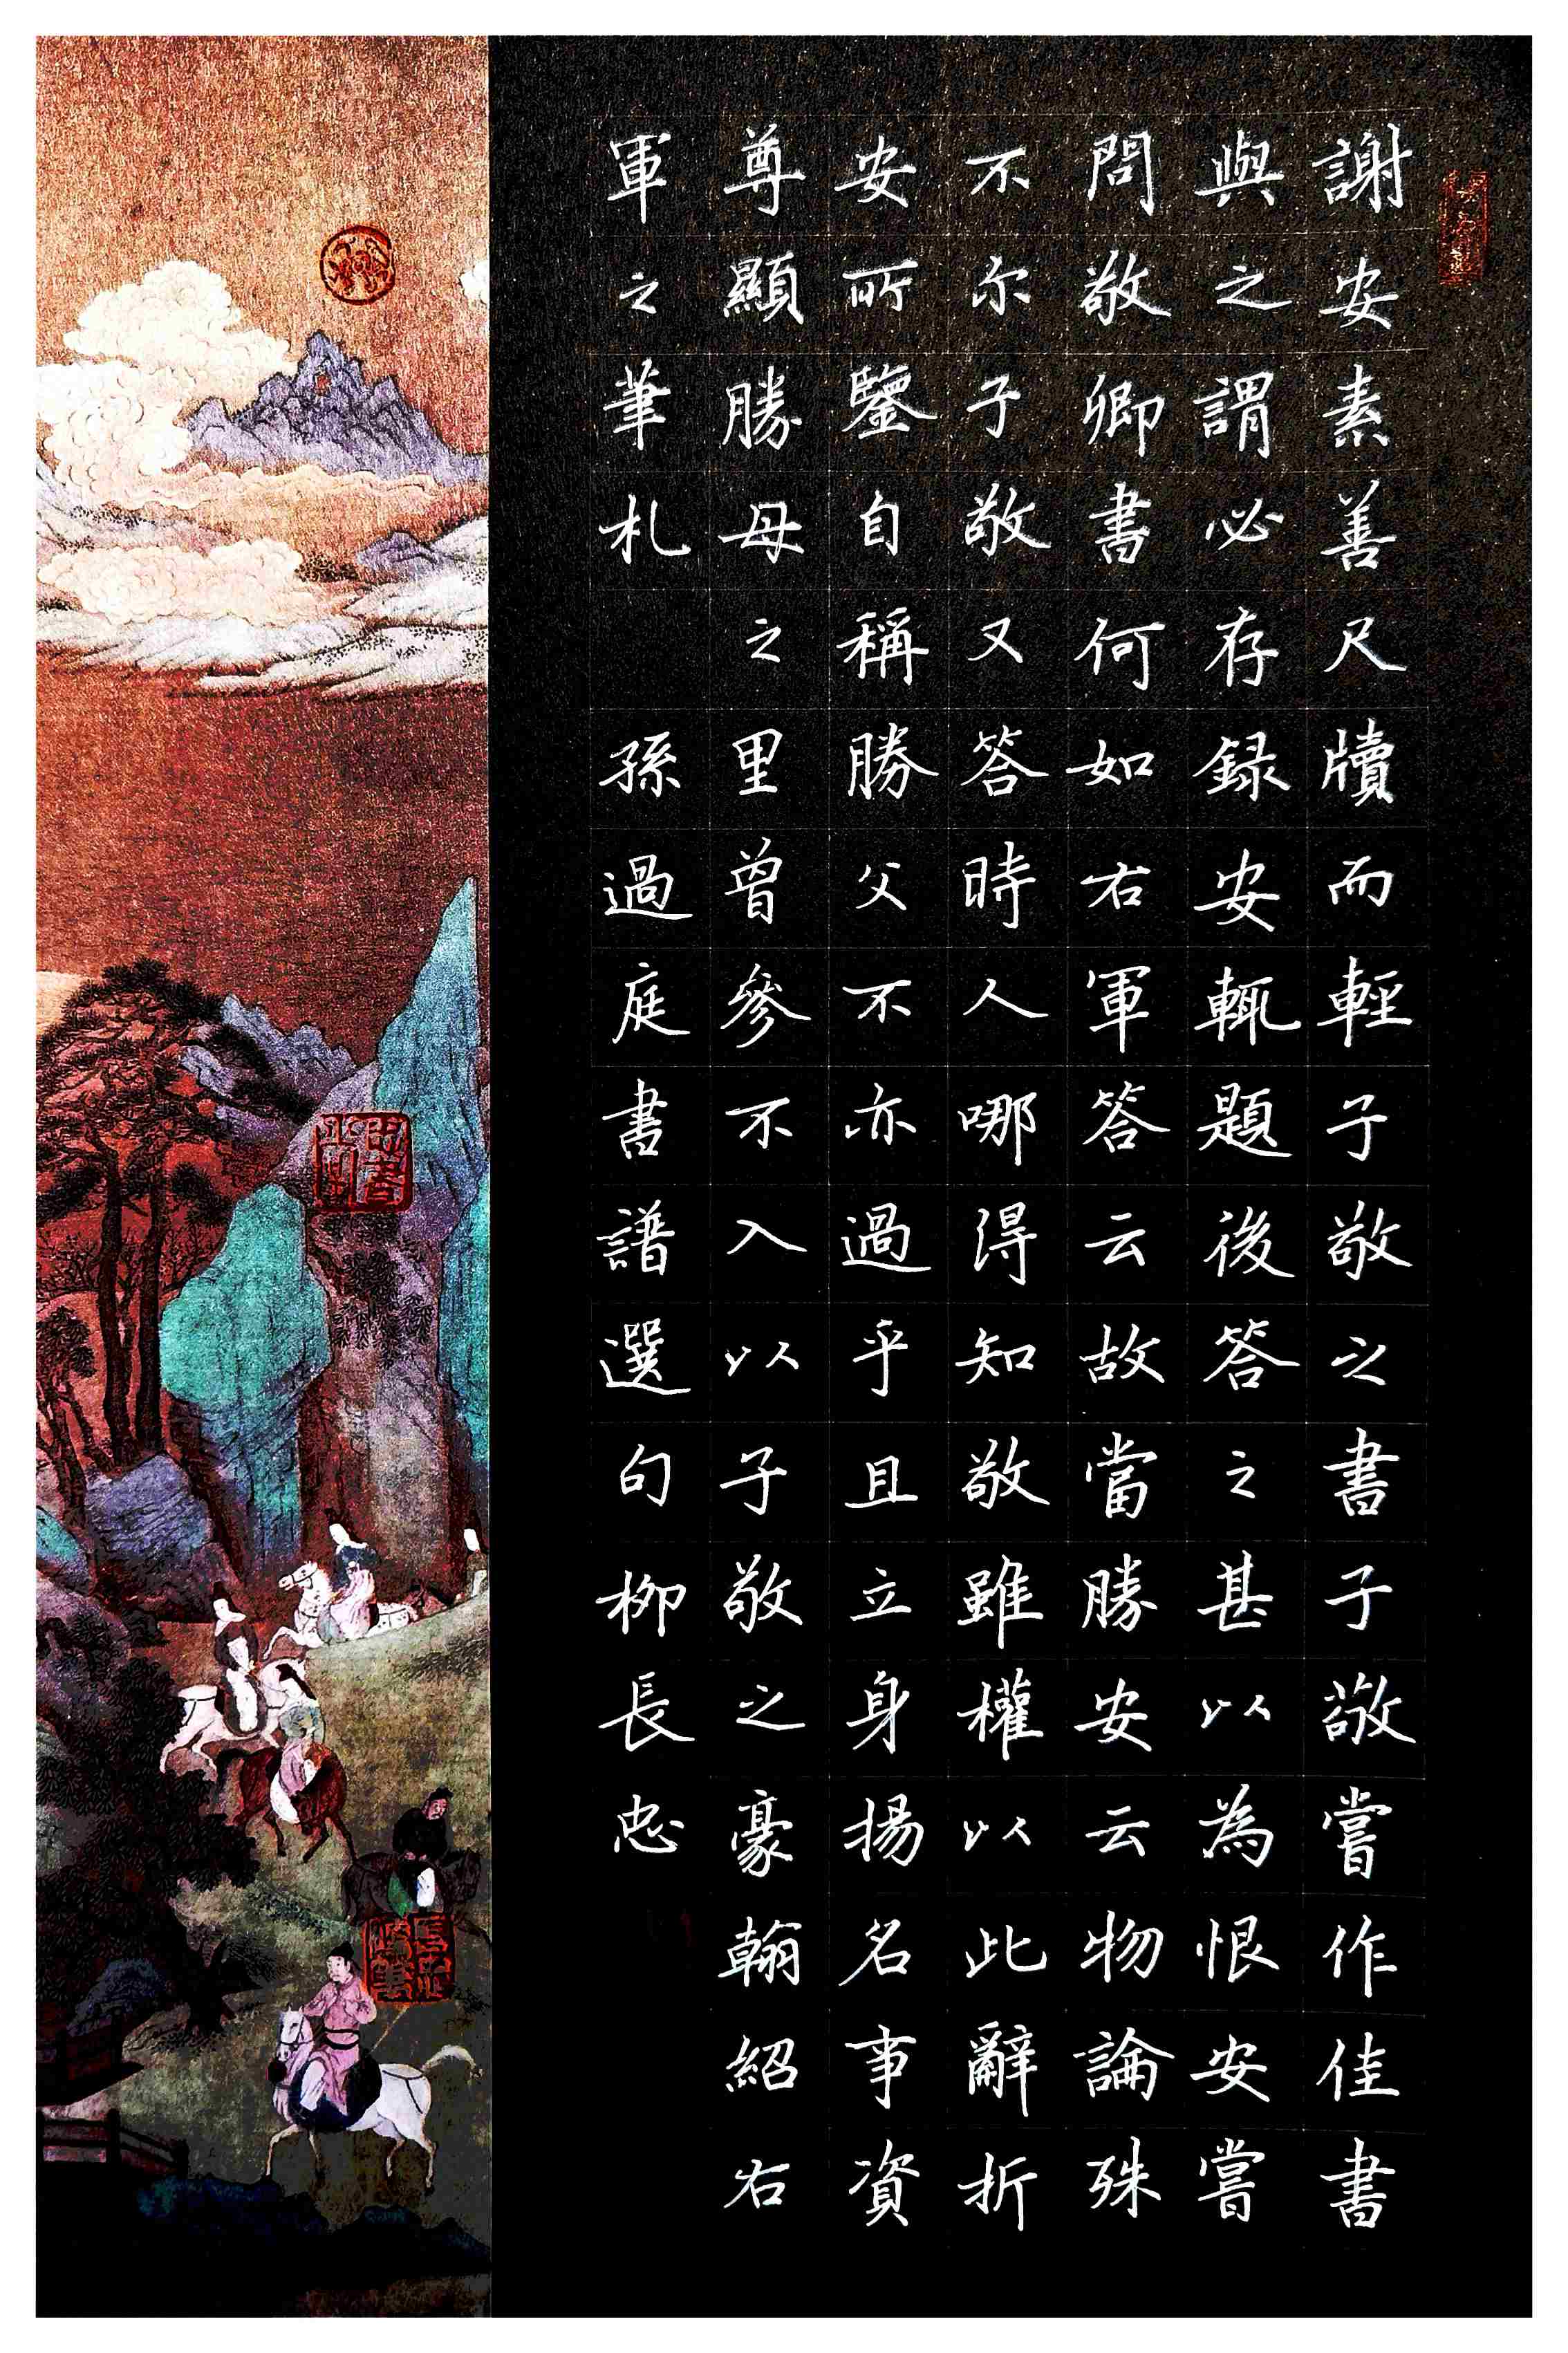 謝安素善尺牘而輕子敬之書子敬嘗作佳書
與之謂必存録安輒題後答之甚以為恨安嘗
問敬卿書何如右軍答云故當勝安云物論殊
不尔子敬又答時人哪得知敬雖權以此辭折
安所鑒自稱勝父不亦過乎且立身揚名事資
尊顯勝母之里曾參不入以子敬之豪翰紹右
軍之筆札 孫過庭書譜選句柳長忠